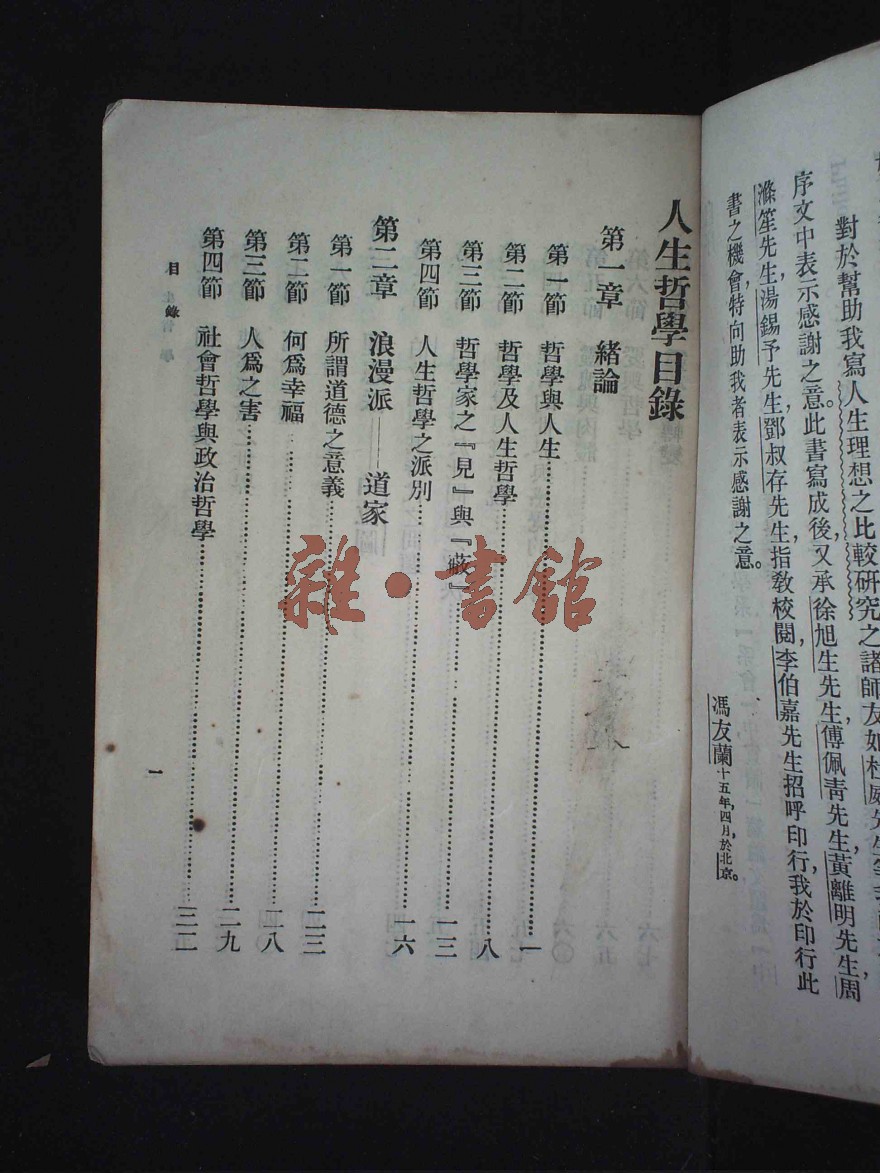 對於幫助我寫人生理想之比較研究之諸師友如杜威先生
序文中表示感謝之意。此書寫成後,又承徐旭生先生,傅佩青先生,黃離明先生,周
滌笙先生,湯錫予先生,鄧叔存先生,指敎校閱,李伯嘉先生招呼印行,我於印行此
書之機會,特向助我者表示感謝之意。
馮友蘭十五年,四月,於北京。
人生哲學目錄
第一章 緒論
第一節 哲學與人生……一
第二節 哲學及人生哲學……八
第三節 哲學家之『見』與『蔽』……一三
第四節 人生哲學之派別……一六
第二章 浪漫派——道家
第一節 所謂道德之意義……二三
第二節 何爲幸福……二八
第三節 人爲之害……二九
第四節 社會哲學與政治哲學……三二
目錄
一
雜·書館